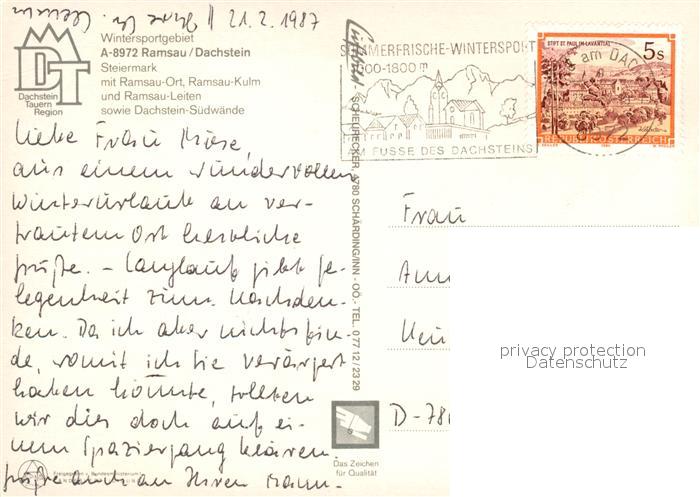 21.2.1987
Wintersportgebiet
A-8972 Ramsau/Dachstein
Steiermark
mit Ramsau-Ort, Ramsau-Kulm
und Ramsau-Leiten
sowie Dachstein-Südwände
DT
Dachstein
Tauern
Region
Liebe Frau
aus einem wundervollen
Winterurlaub an ver-
trautem Ort herzliche
Grüße. – Langlauf gibt Ge-
legenheit zum Nachden-
ken. Da ich aber nichts fin-
de, womit ich Sie verärgert
haben könnte, sollten
wir dies doch auf ei-
nem Spaziergang klären.
Grüße auch an Ihren Mann.
SCHEURECKER, 4780 SCHÄRDING/INN - OÖ. - TEL. 0 77 12 / 23 29
SOMMERFRISCHE-WINTERSPORT
1000-1800 m
AM FUSSE DES DACHSTEINS
STIFT ST. PAUL IM LAVANTTAL
5s
REPUBLIK ÖSTERREICH
am DAC
Frau
D-78
privacy protection
Datenschutz
Das Zeichen
für Qualität